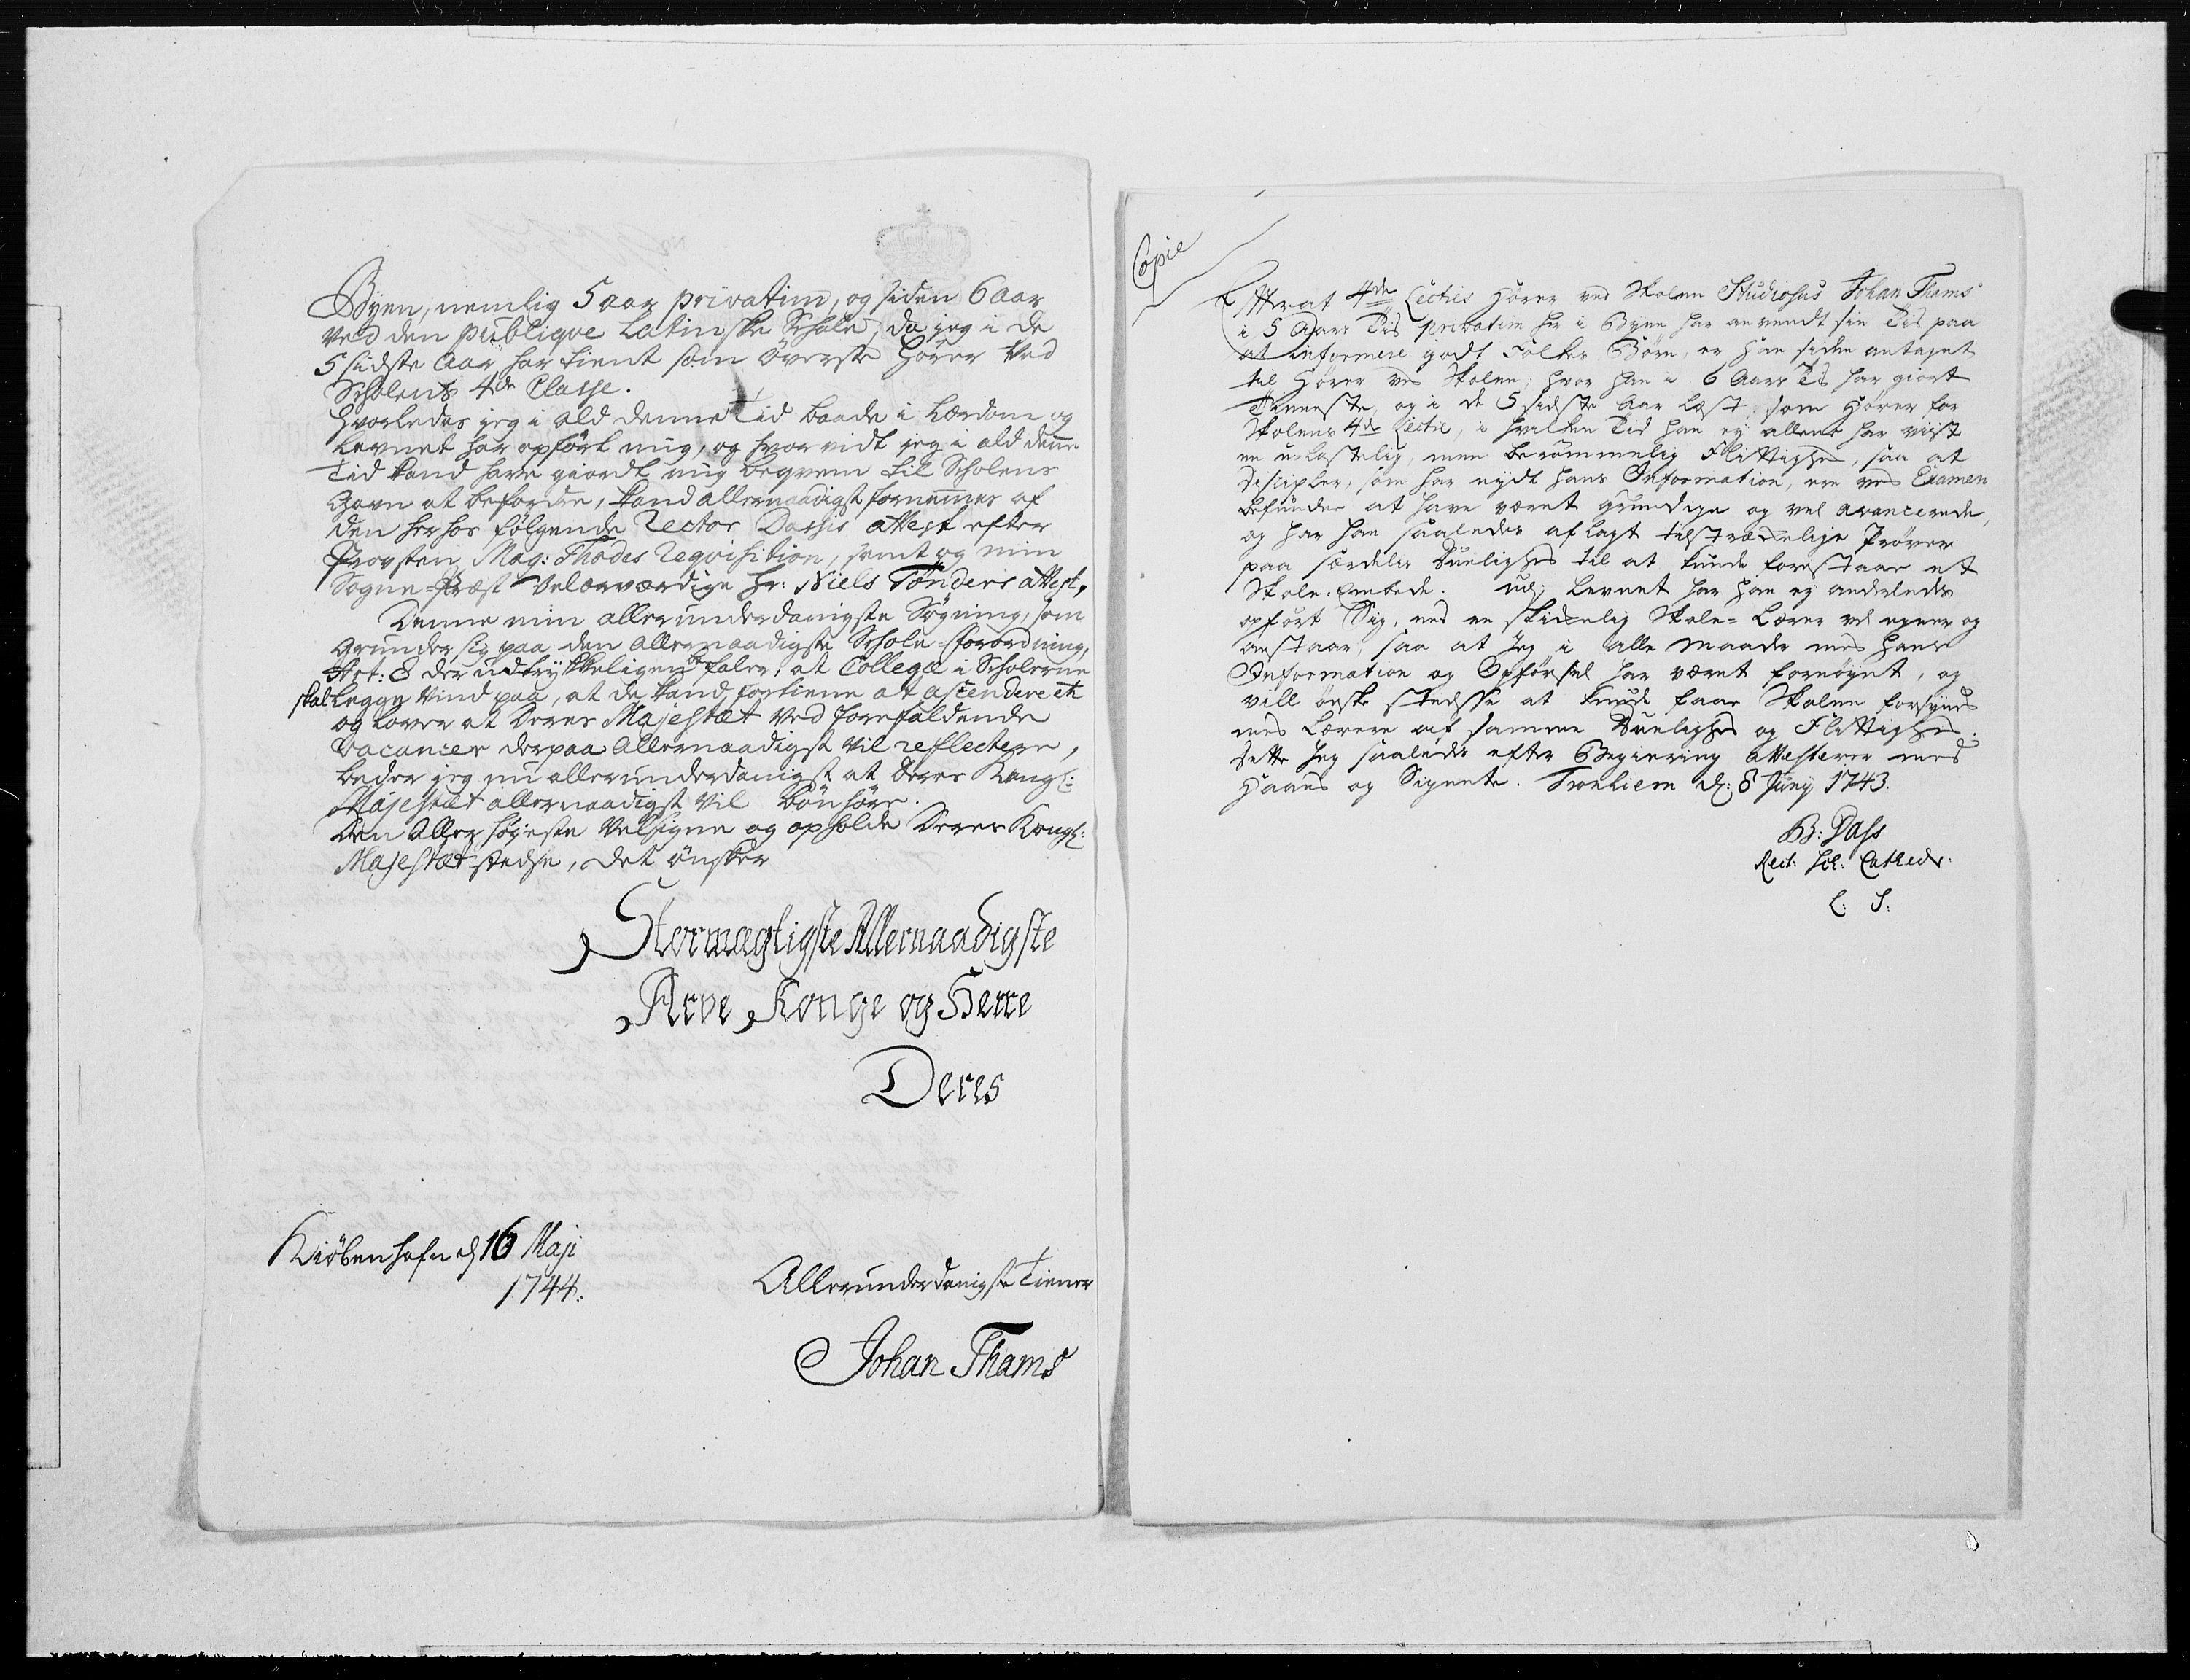 Byen, nemlig 5 aar privatim, og siden 6 aar
ved den publiqve Latinske Schole, da jeg i de
5 sidste Aar har tient som överste Hörer ved
Scholens 4de Classe.
Hvorledes jeg i ald denne Tid baade i Lærdom og
Levnet har opfört mig, og hvor vidt jeg i ald denne
Tid kand have giordt mig beqvem til Scholens
Gavn at befordre, kand allernaadigst fornemmes af
den herhos fölgende Rector Dassis attest efter
Provsten Mag: Thodes Reqvisition, samt og min
Sogne-Præst Velærværdige Hr: Niels Tönders attest.
Denne min allerunderdanigste Sögning, som
grunder sig paa den allernaadigste Schole-Forordning,
Art: 8 der udtrykkeligen befaler, at Collegæ i Scholerne
skal legge Vind paa, at de kand fortiene at ascendere etc
og lover at Deres Majestæt ved forefaldende
Vacancer derpaa allernaadigst vil reflectere,
beder jeg nu allerunderdanigst at Deres Kongl:
Majestæt allernaadigst vil bönhöre.
Den Allerhöjeste Velsigne og opholde Deres Kongl:
Majestæt stedse, det önsker
Stormægtigste Allernaadigste
Arve Konge og Herre
Deres
Kiöbenhafn d 16 Maji
1744.
Allerunderdanigste Tiener
Johan Thams
Copie
Efterat 4de Lectiis Hörer ved Skolen Studiosus Johan Thams
i 5 Aars Tid privatim her i Byen har anvendt sin Tid paa
at informere godt Folkes Börn, er han siden antaget
til Hörer ved Skolen; hvor han i 6 Aars Tid har giort
Tieneste, og i de 5 sidste Aar læst som Hörer for
Skolens 4de Lectie, i hvilken Tid han ej allene har viist
en u-lastelig, men berömmelig Flittighed, saa at
Discipler, som har nydt hans Information, ere ved Examen
befunden at have været grundige og vel avancerede,
og har han saaledes aflagt tilstrækkelige Pröver
paa særdeles Duelighed til at kunde forestaae et
Skole-Embede. Udj Levnet har han ej anderledes
opfört Sig, end en skikkelig Skole-Lærer vel egner og
anstaar, saa at Jeg i alle maader med hans
Information og Opförsel har været fornöyet, og
vill önske stedsse at kunde faae Skolen forsynet
med Lærere af samme Duelighed og Flittighed.
Dette Jeg saaledes efter Begiering attesterer med
Haand og Signete. Tronhiem d: 8 Junij 1743.
B: Dass
Rect: Sch: Cathedr.
L: S: